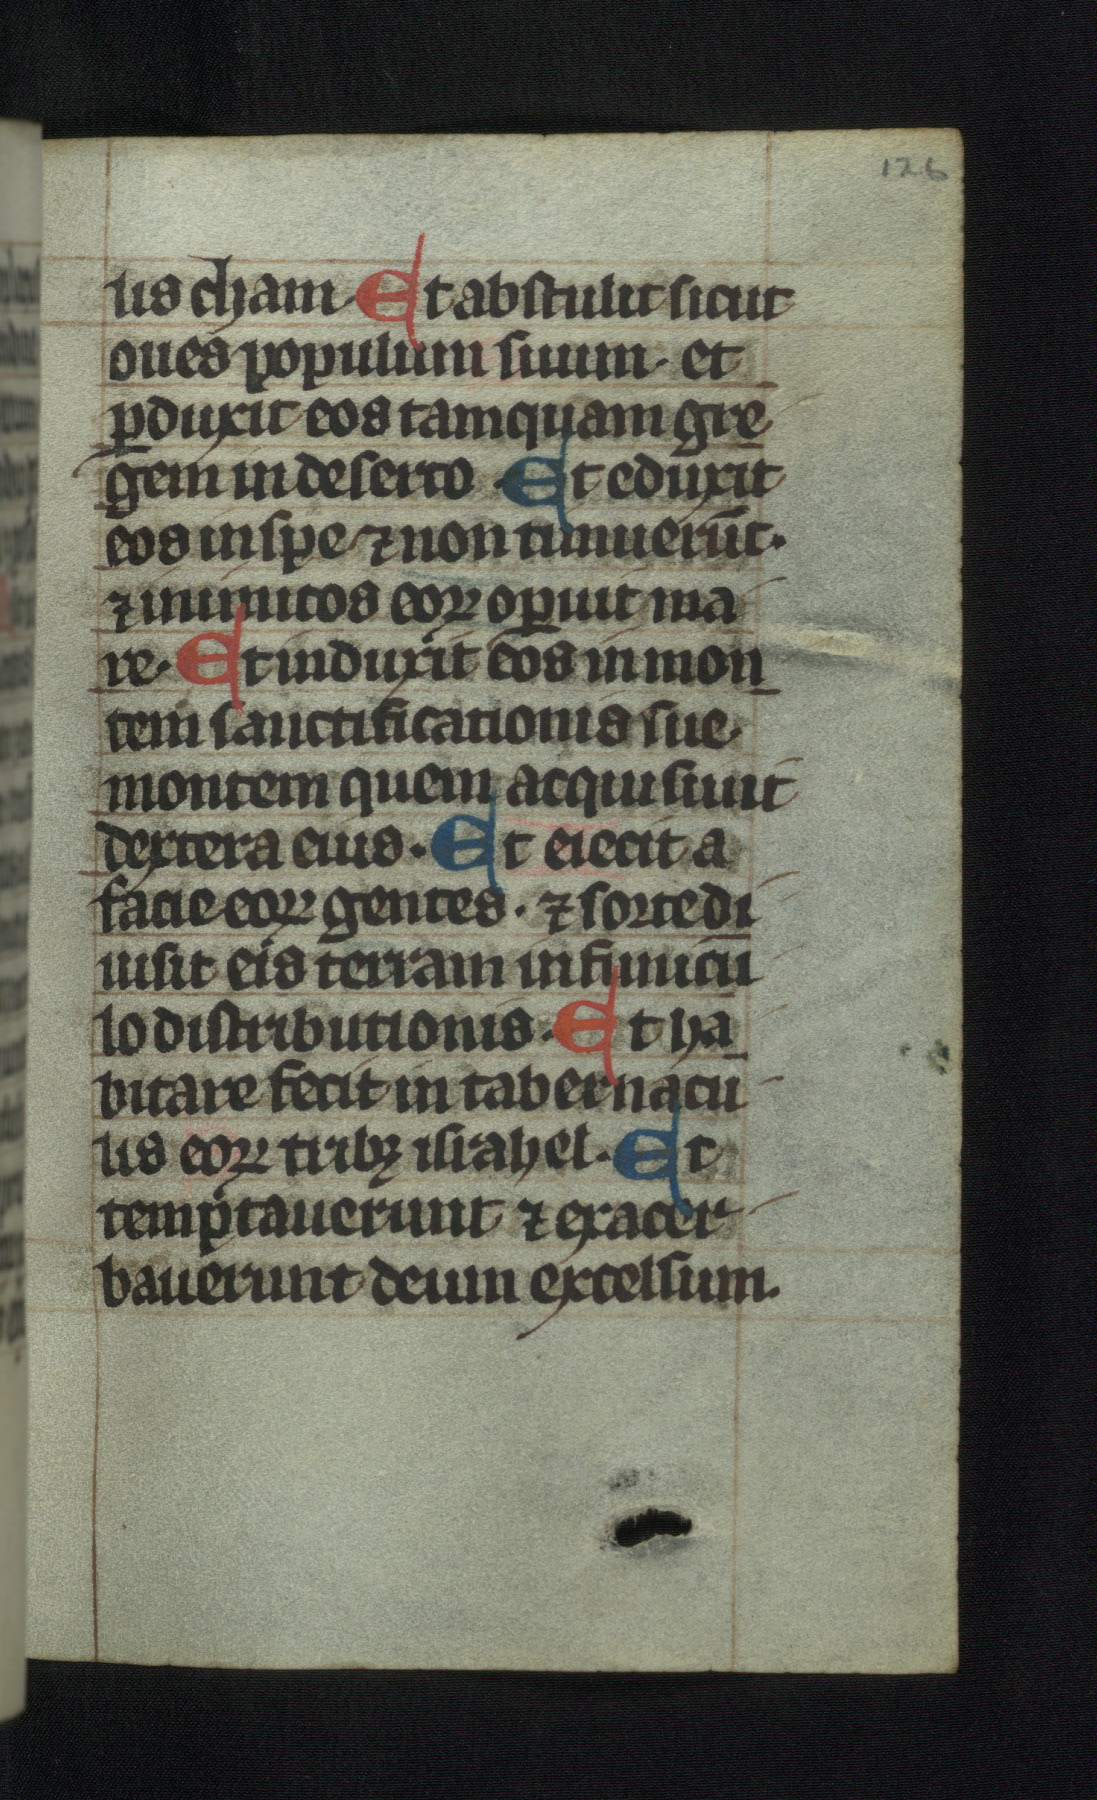 126
lis cham. Et abstulit sicut
oues populum suum. et
ꝑduxit eos tamquam gre
gem in deserto. Et eduxit
eos in spe ⁊ non timuerūt.
⁊ inimicos eoꝝ oꝑuit ma
re. Et induxit eos in mon
tem sanctificationis sue.
montem quem acquisiuit
dextera eius. Et eiecit a
facie eoꝝ gentes. ⁊ sorte di
uisit eis terram in funicu
lo distributionis. Et ha
bitare fecit in tabernacu
lis eoꝝ tribꝫ israhel. Et
temptauerunt ⁊ exacer
bauerunt deum excelsum.